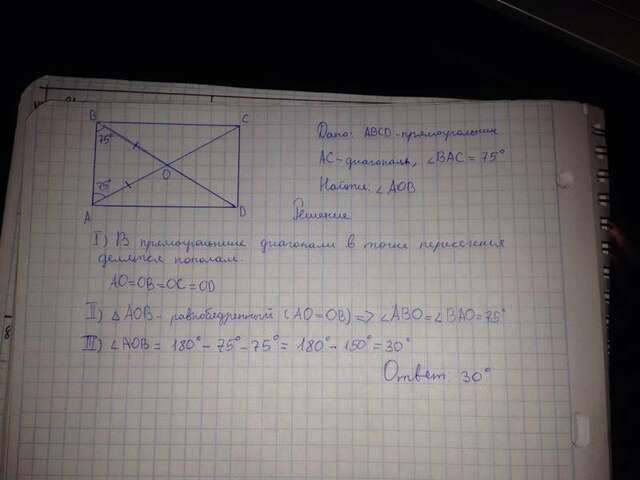 B
C
75°
O
75°
A
D
Дано: ABCD - прямоугольник
AC - диагональ, ∠BAC = 75°
Найти: ∠AOB
Решение
I) В прямоугольнике диагонали в точке пересечения
делятся пополам.
AO=OB=OC=OD
II) △AOB - равнобедренный (AO=OB) => ∠ABO=∠BAO=75°
III) ∠AOB = 180° - 75° - 75° = 180° - 150° = 30°
Ответ 30°